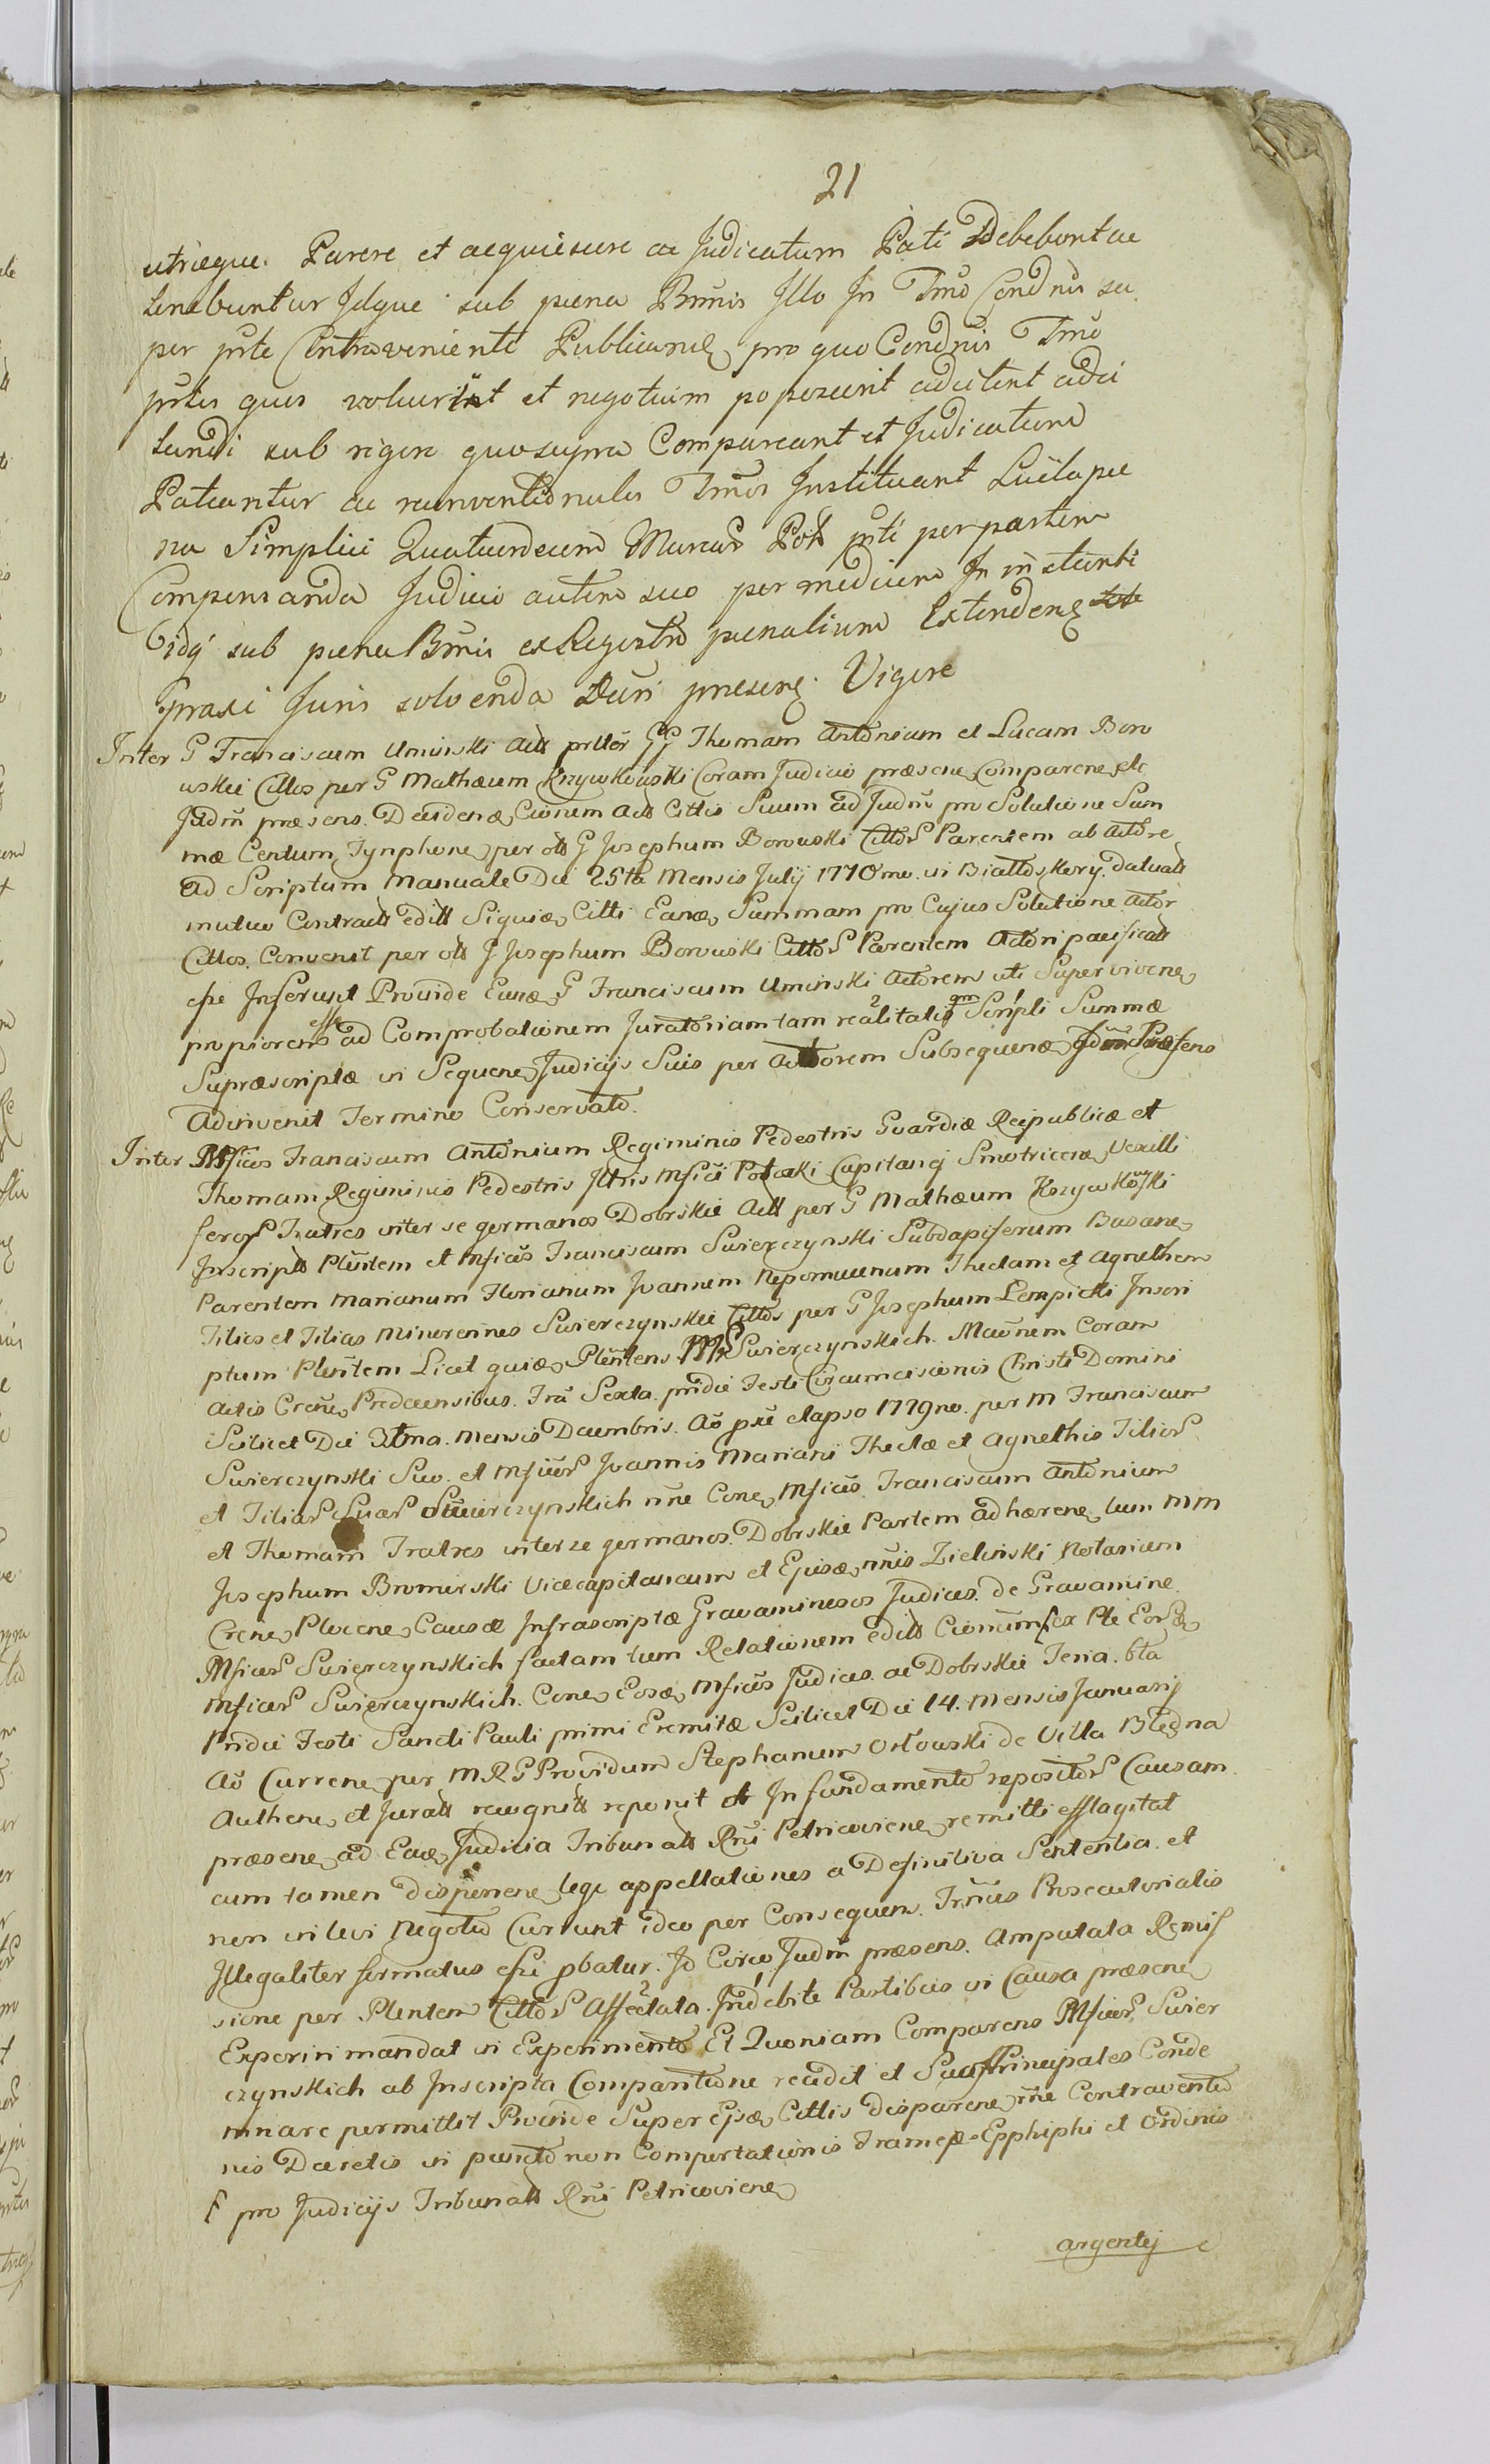 21
utrięque. Parere et acquiescere ac Judicatum Pati Debebunt ac
tenebuntur Idque sub pæna Bnnis Illo In Tmo Condnis su
per prte Contraveniente Publicand, pro quo Condnis Tmo
prtes quos voluerint et negotium poposcerit adcitent adci
tandi sub rigore quo supra Compareant et Judicatum
Patiantur ac reinventionales Tmos Instituant Luita pæ
na Simplici Quatuordecim Marcar Pol prti per partem
Compensanda Judicio autem suo per medium In instanti
idq sub pæna Bnnis ex Regestro pænalium Extendend
praxi Juris solvenda Dari præsen. Vigore
Inter G Franciscum Uminski Actt prttor GG Thomam Antonium et Lucam Boro
wskie Cittos per G Mathæum Krzywkowski Coram Judicio præsenc Comparenc, etc
Judm præsens. Decidenæ, Cionem Actt Cittis Suum ad Judm pro Solutione Sum
mæ Centum Tynphonc, per ott G Josephum Borowski Cittor Parentem ab Actore
ad Scriptum Manuale Die 25ta Mensis Julij 1770mo. in Białłoskory. datuatt
mutuo Contractt editt Siquiæ, Citti Eanæ, Summam pro Cujus Solutione Actor
Cittos. Convenit per ott G Josephum Borowski Cittor Parentem Actori pacificatt
esse Inferunt Provide Eunæ, G Franciscum Uminski Actorem uti Supervivenc,
propiorem esse ad Comprobationem Juratoriam tam realitatis qm Scripti Summæ
Supræscriptæ in Sequenc, Judicijs Suis per Actorem Subsequenæ Judm Præsens
Adinvenit Termino Conservato.
Inter Mficos Franciscum Antonium Regiminis Pedestris Gvardiæ Reipublicæ et
Thomam Regiminis Pedestris Iltris Mfici Potocki Capitanej Smotricenc, Vexilli
feror Fratres inter se germanos Dobrskie Actt per G Mathæum Krzywkowski
Inscriptt Pltentem et Mficus Franciscum Swierczynski Subdapiferum Busanc,
Parentem Marianum Florianum Joannem Nepomucenum Theclam et Agnethem
Filios et Filias Minorennes Swierczynskie Cittos per G Josephum Łempicki Inscri
ptum Pltentem Licet quiæ, Pltentens MM Swierczynskich. Maonem Coram
Actis Crenc, Predecensibus. Fria Sexta. pridie Festi Circumcisionis Christi Domini
Scilicet Die 31tma. Mensis Decembris. Ao pre elapso 1779no. per M Franciscum
Swierczynski Suo. et Mficor Joannis Mariani Theclæ et Agnethis Filior
et Filiar Suar Swierczynskich nne Conc, Mficos Franciscum Antonium
et Thomam Fratres inter se germanos. Dobrskie Partem adhærenc, tum MM
Josephum Bromirski Vicecapitaneum et Ejusæ, nnis Zielinski Notarium
Crenc, Plocenc, Causæ Infrascriptæ Gravaminesos Judices. de Gravamine
Mficor Swierczynskich factam tum Relationem editt Cionum ex Pte Eoræ,
Mficor Swierczynskich. Conc, Eosæ, Mficos Judices. ac Dobrskie Feria. 6ta
Pridie Festi Sancti Pauli primi Eremitæ Scilicet Die 14. Mensis Januarij
Ao Currenc, per M R G Providum Stephanum Orłowski de Villa Blędna
Authenc, et Juratt recognitt reponit et In fundamento repositor Causam
præsenc, ad Eaæ, Judicia Tribunatt Rni Petricoviene, remitti efflagitat
cum tamen disponenc, lege appellationes a Definitiva Sententia. et
non in levi Negotio Currunt ideo per Consequens. Trnus Prosecutorialis
Illegaliter formatus esse pbatur. Id Circo Judm præsens. Amputata Remis
sione per Pltentem Cittor Affectata. Indebite Partibus in Causa præsenc,
Experiri mandat in Experimento Et Quoniam Comparens Mficor Swier
czynskich ab Inscripta Comparitione recedit et Suos Principales Conde
mnare permittit Proinde Super Ejsæ, Cittis disparenc, nne Contraventio
nis Decretis in puncto non Comportationis Frameæ Epphiphi et Ordinis
f pro Judicijs Tribunatt Rni Petricoviene,
argentej